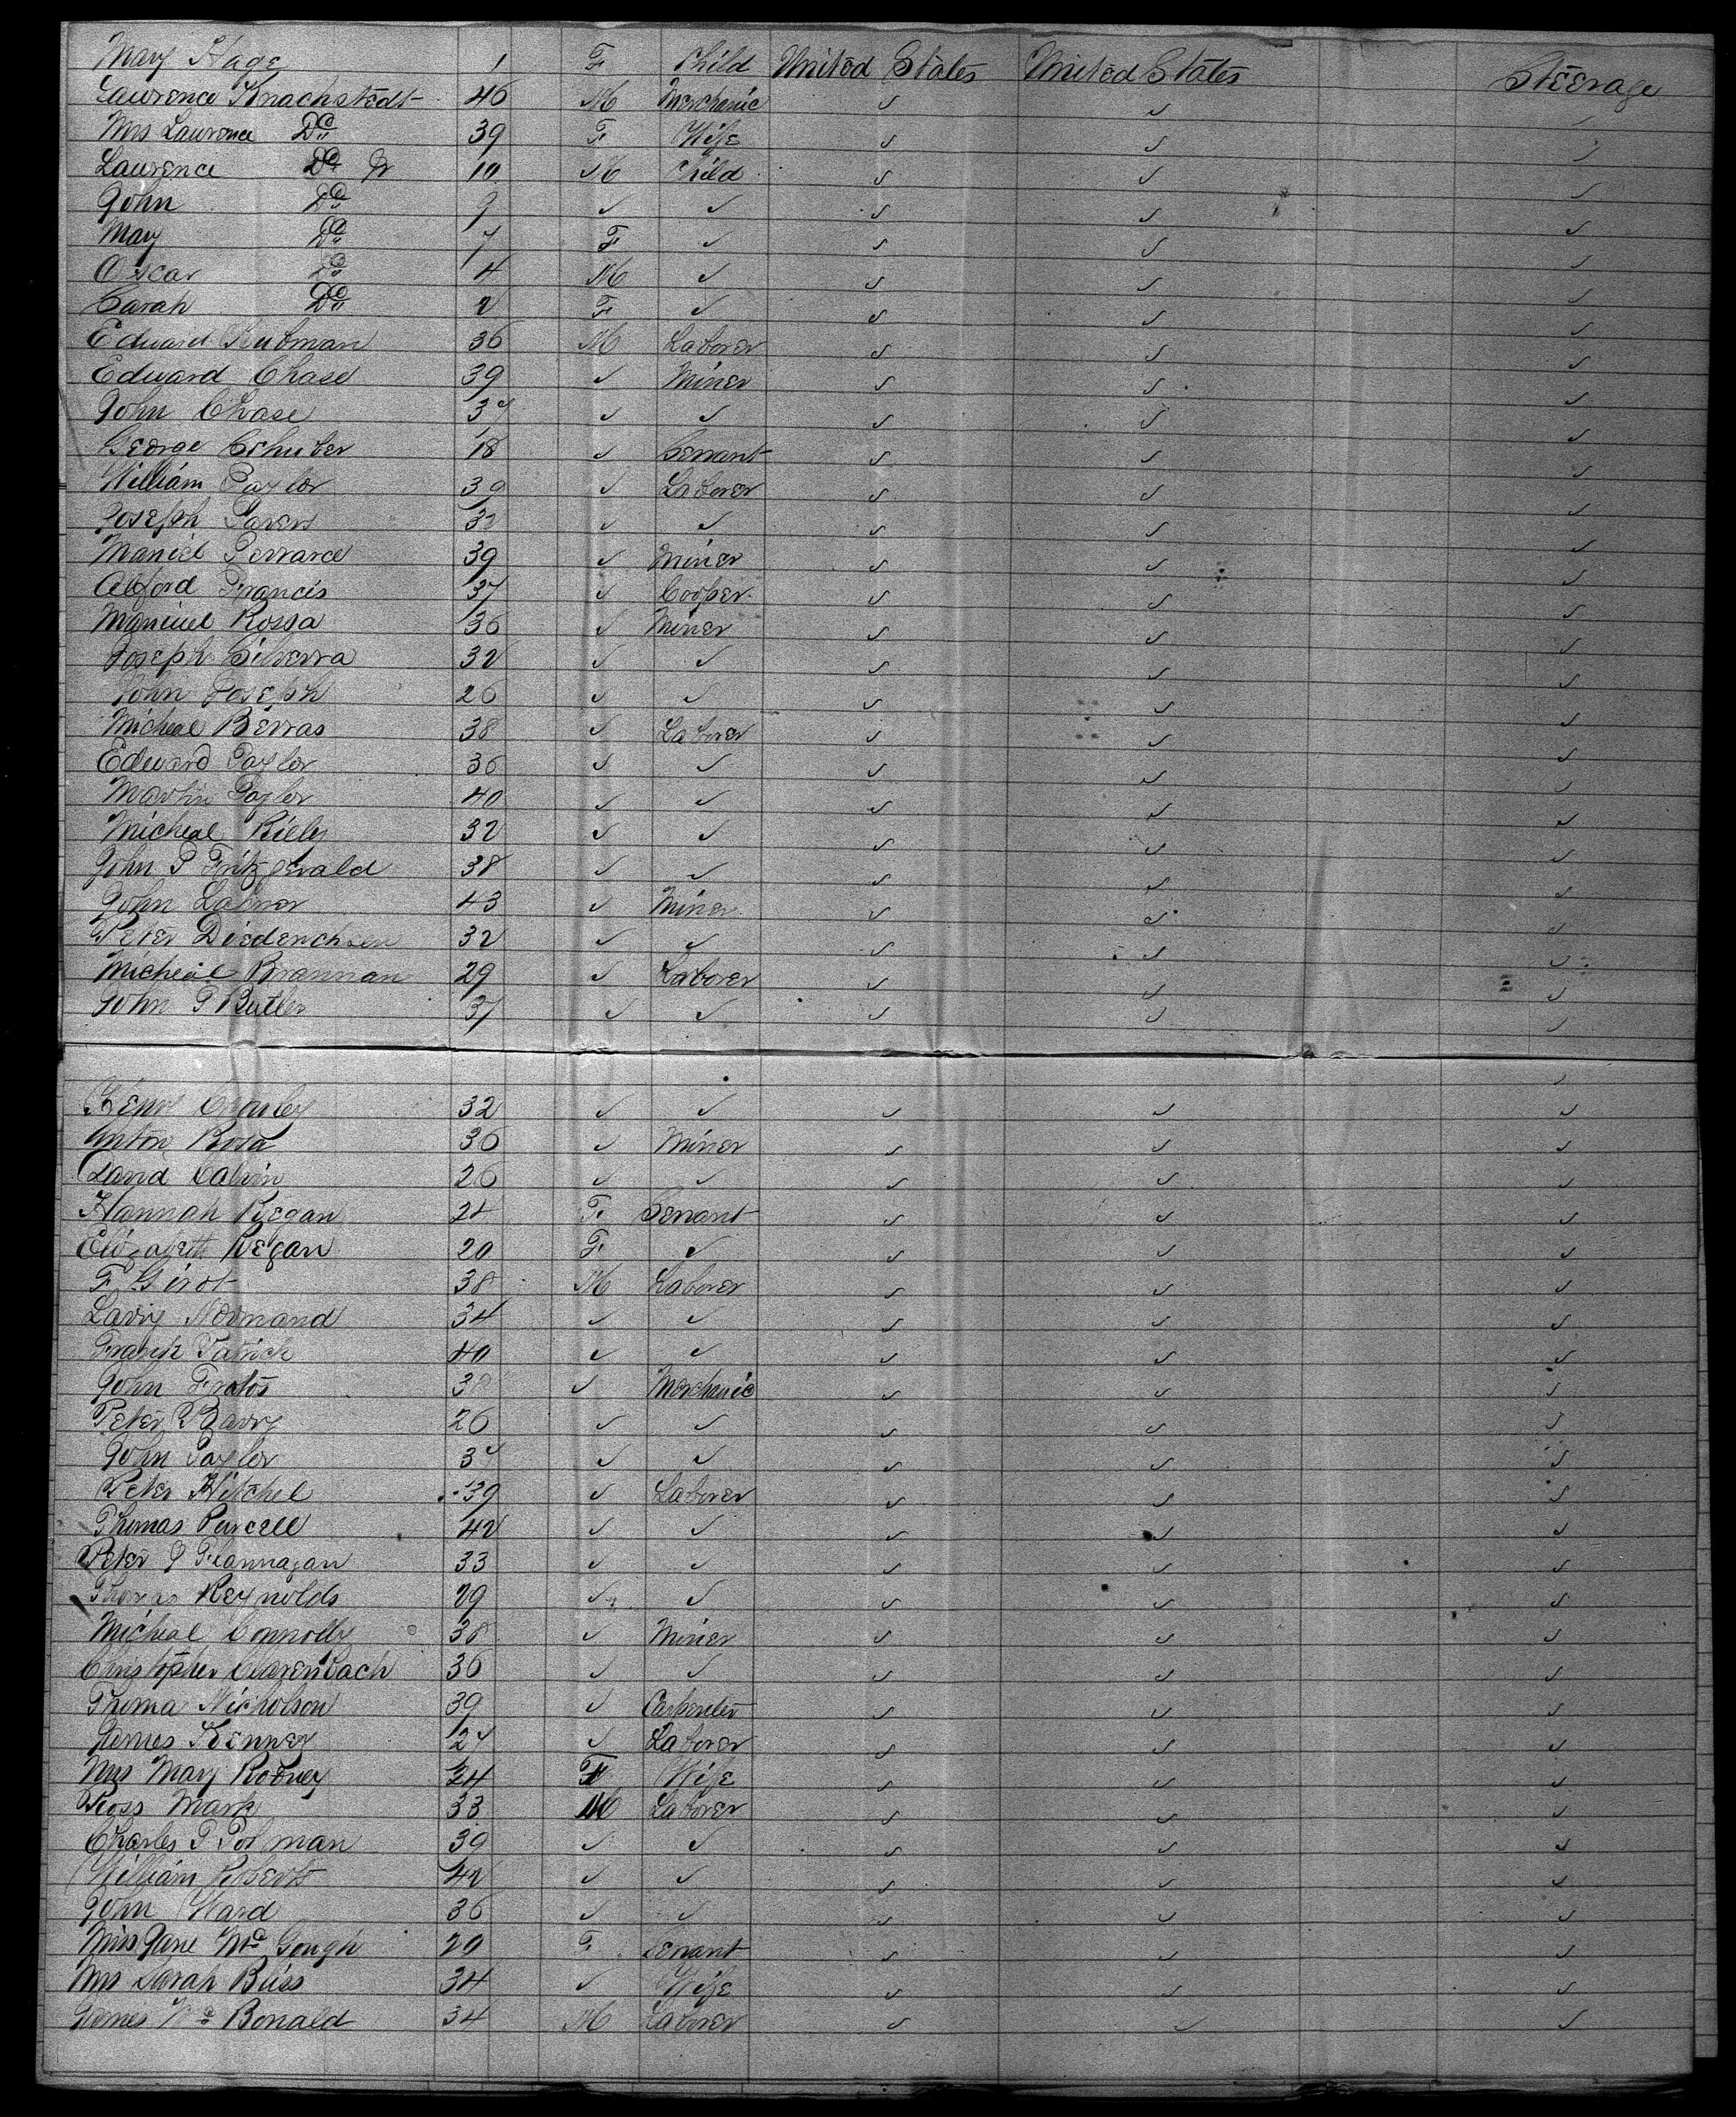 Mary Hage 1 F Child United States United States Steerage
Lawrence Knachstedt 46 M Merchanic ✓ ✓ ✓
Mrs Lawrence Do 39 F Wife ✓ ✓ ✓
Laurence Do Jr 10 M Child ✓ ✓ ✓
John Do 9 ✓ ✓ ✓ ✓ ✓
Mary Do 7 F ✓ ✓ ✓ ✓
Oscar Do 4 M ✓ ✓ ✓ ✓
Sarah Do 2 F ✓ ✓ ✓ ✓
Edward 36 M Laborer ✓ ✓ ✓
Edward Chase 39 ✓ Miner ✓ ✓ ✓
John Chase 37 ✓ ✓ ✓ ✓ ✓
George Schuber 18 ✓ Servant ✓ ✓ ✓
William Taylor 39 ✓ Laborer ✓ ✓ ✓
Joseph 32 ✓ ✓ ✓ ✓ ✓
Maniel 39 ✓ Miner ✓ ✓ ✓
Alford Francis 37 ✓ Cooper ✓ ✓ ✓
Manuel Rossa 36 ✓ Miner ✓ ✓ ✓
Joseph Silverra 32 ✓ ✓ ✓ ✓ ✓
John Joseph 26 ✓ ✓ ✓ ✓ ✓
Micheal Berras 38 ✓ Laborer ✓ ✓ ✓
Edward Taylor 36 ✓ ✓ ✓ ✓ ✓
Martin Taylor 40 ✓ ✓ ✓ ✓ ✓
Micheal Riely 32 ✓ ✓ ✓ ✓ ✓
John P Fritzgerald 38 ✓ ✓ ✓ ✓ ✓
John 43 ✓ Miner ✓ ✓ ✓
Peter Diederichsen 32 ✓ ✓ ✓ ✓ ✓
Micheal Brannan 29 ✓ Laborer ✓ ✓ ✓
John P Butler 37 ✓ ✓ ✓ ✓ ✓
Henry 32 ✓ ✓ ✓ ✓ ✓
Anton Rosa 36 ✓ Miner ✓ ✓ ✓
David Calvin 26 ✓ ✓ ✓ ✓ ✓
Hannah Regan 24 F Servant ✓ ✓ ✓
Elizabeth Regan 20 F ✓ ✓ ✓ ✓
F Girot 38 M Laborer ✓ ✓ ✓
Larry Normand 34 ✓ ✓ ✓ ✓ ✓
Frank Patrick 40 ✓ ✓ ✓ ✓ ✓
John Fratos 38 ✓ Merchanic ✓ ✓ ✓
Peter Barry 26 ✓ ✓ ✓ ✓ ✓
John Taylor 37 ✓ ✓ ✓ ✓ ✓
Peter Hitchel 39 ✓ Laborer ✓ ✓ ✓
Thomas Purcell 42 ✓ ✓ ✓ ✓ ✓
Peter J Flannagan 33 ✓ ✓ ✓ ✓ ✓
Thomas Reynolds 29 ✓ ✓ ✓ ✓ ✓
Micheal Connolly 38 ✓ Miner ✓ ✓ ✓
Christopher Clarenbach 36 ✓ ✓ ✓ ✓ ✓
Thoma Nicholson 39 ✓ Carpenter ✓ ✓ ✓
James Kenney 27 ✓ Laborer ✓ ✓ ✓
Mrs Mary Rodney 24 F Wife ✓ ✓ ✓
Ross Mark 33 M Laborer ✓ ✓ ✓
Charles P Tolman 39 ✓ ✓ ✓ ✓ ✓
William Roberts 42 ✓ ✓ ✓ ✓ ✓
John Ward 36 ✓ ✓ ✓ ✓ ✓
Miss Jane Mc Gough 20 F Servant ✓ ✓ ✓
Mrs Sarah Buiss 34 ✓ Wife ✓ ✓ ✓
James Mc Bonald 34 M Laborer ✓ ✓ ✓